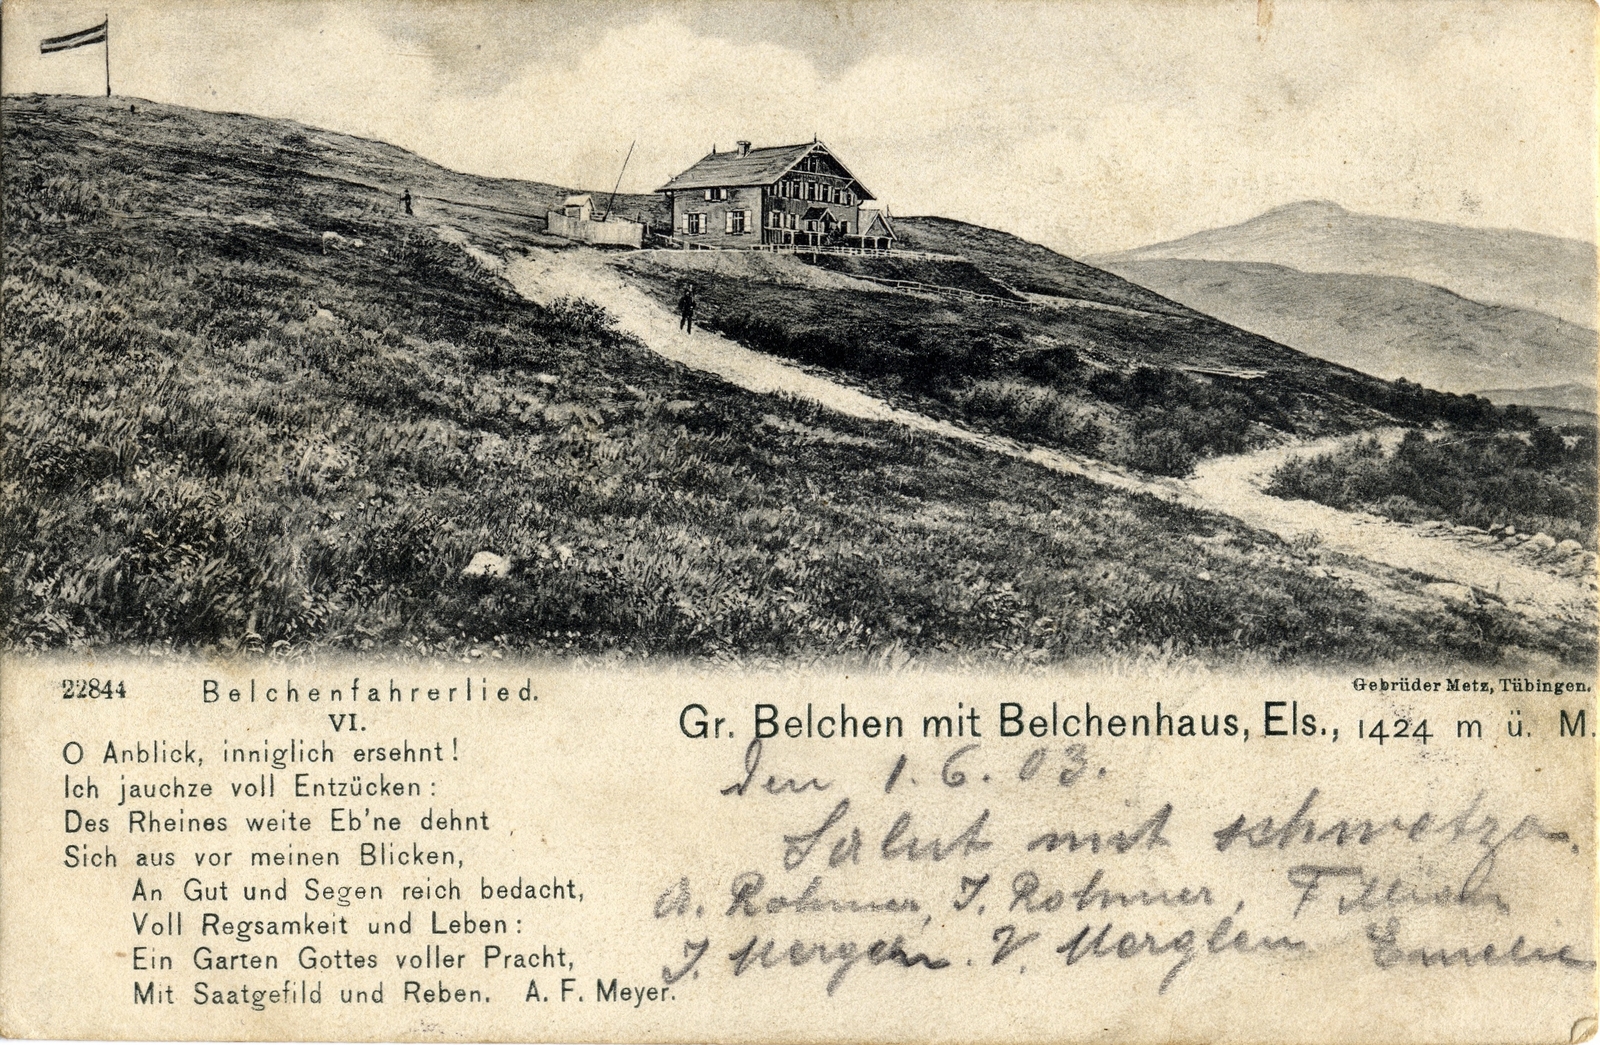 22844 Belchenfahrerlied.
VI.
O Anblick, inniglich ersehnt!
Ich jauchze voll Entzücken:
Des Rheines weite Eb'ne dehnt
Sich aus vor meinen Blicken,
An Gut und Segen reich bedacht,
Voll Regsamkeit und Leben:
Ein Garten Gottes voller Pracht,
Mit Saatgefild und Reben. A. F. Meyer.
Gebrüder Metz, Tübingen.
Gr. Belchen mit Belchenhaus, Els., 1424 m ü. M.
den 1. 6. 03.
Salut mit
A. Rohmer, J. Rohmer,
J. Mergen. V.